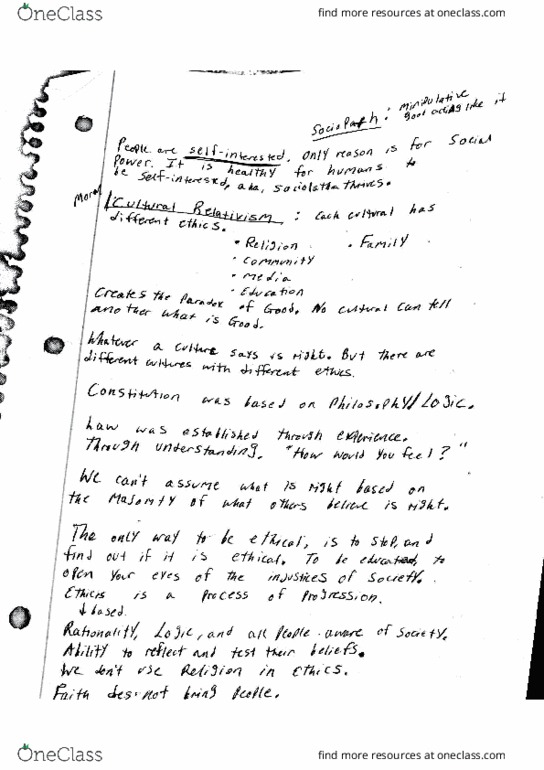 OneClass
find more resources at oneclass.com
SocioPath : Minipulative
good acting like it
People are self-interested. Only reason is for Social
Power. It is healthy for humans to
be self-interested, aka, thrives.
Moral/Cultural Relativism : Each cultural has
different ethics.
• Religion • Family
• Community
• Media
• Education
Creates the Paradox of Good. No cultural can tell
another what is Good.
Whatever a culture says is right. But there are
different cultures with different ethics.
Constitution was based on Philosophy/Logic.
Law was established through experience.
Through understanding. "How would you feel?"
We can't assume what is right based on
the Majority of what others believe is right.
The only way to be ethical, is to step, and
find out if it is ethical. To be educated, to
open your eyes of the injustices of Society.
Ethics is a Process of Progression.
↓ based
Rationality, Logic, and all People aware of Society.
Ability to reflect and test their beliefs.
We don't use Religion in Ethics.
Faith does not bring People.
OneClass
find more resources at oneclass.com